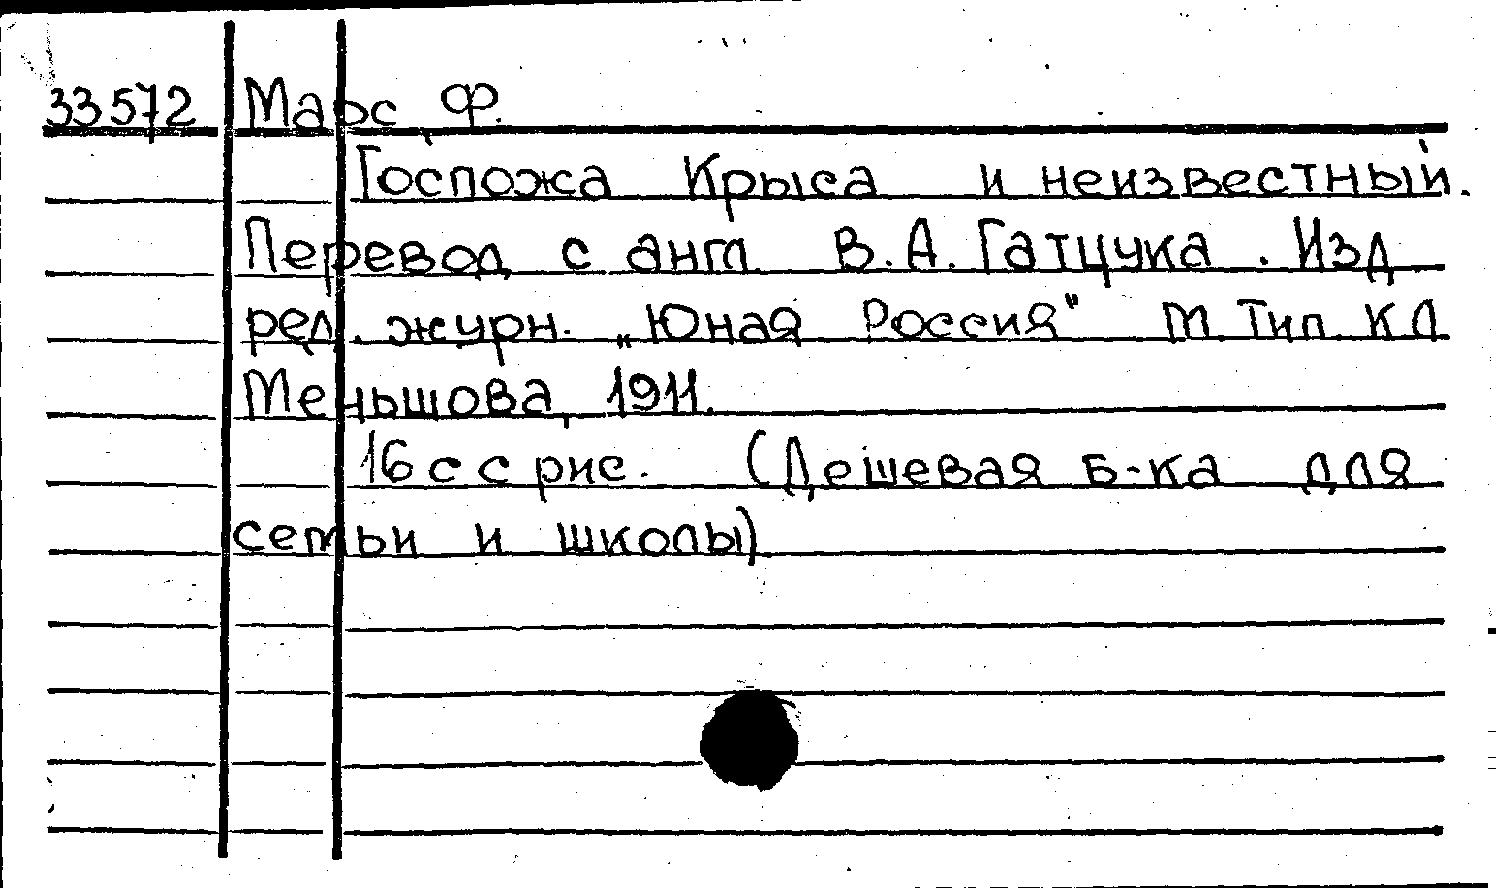 33572 Марс, Ф.
Госпожа Крыса и неизвестный.
Перевод с англ. В.А. Гатцука. Изд
ред. журн. „Юная Россия" М. Тип. К Л
Меньшова, 1911.
16 с с рис. (Дешевая б-ка для
семьи и школы)